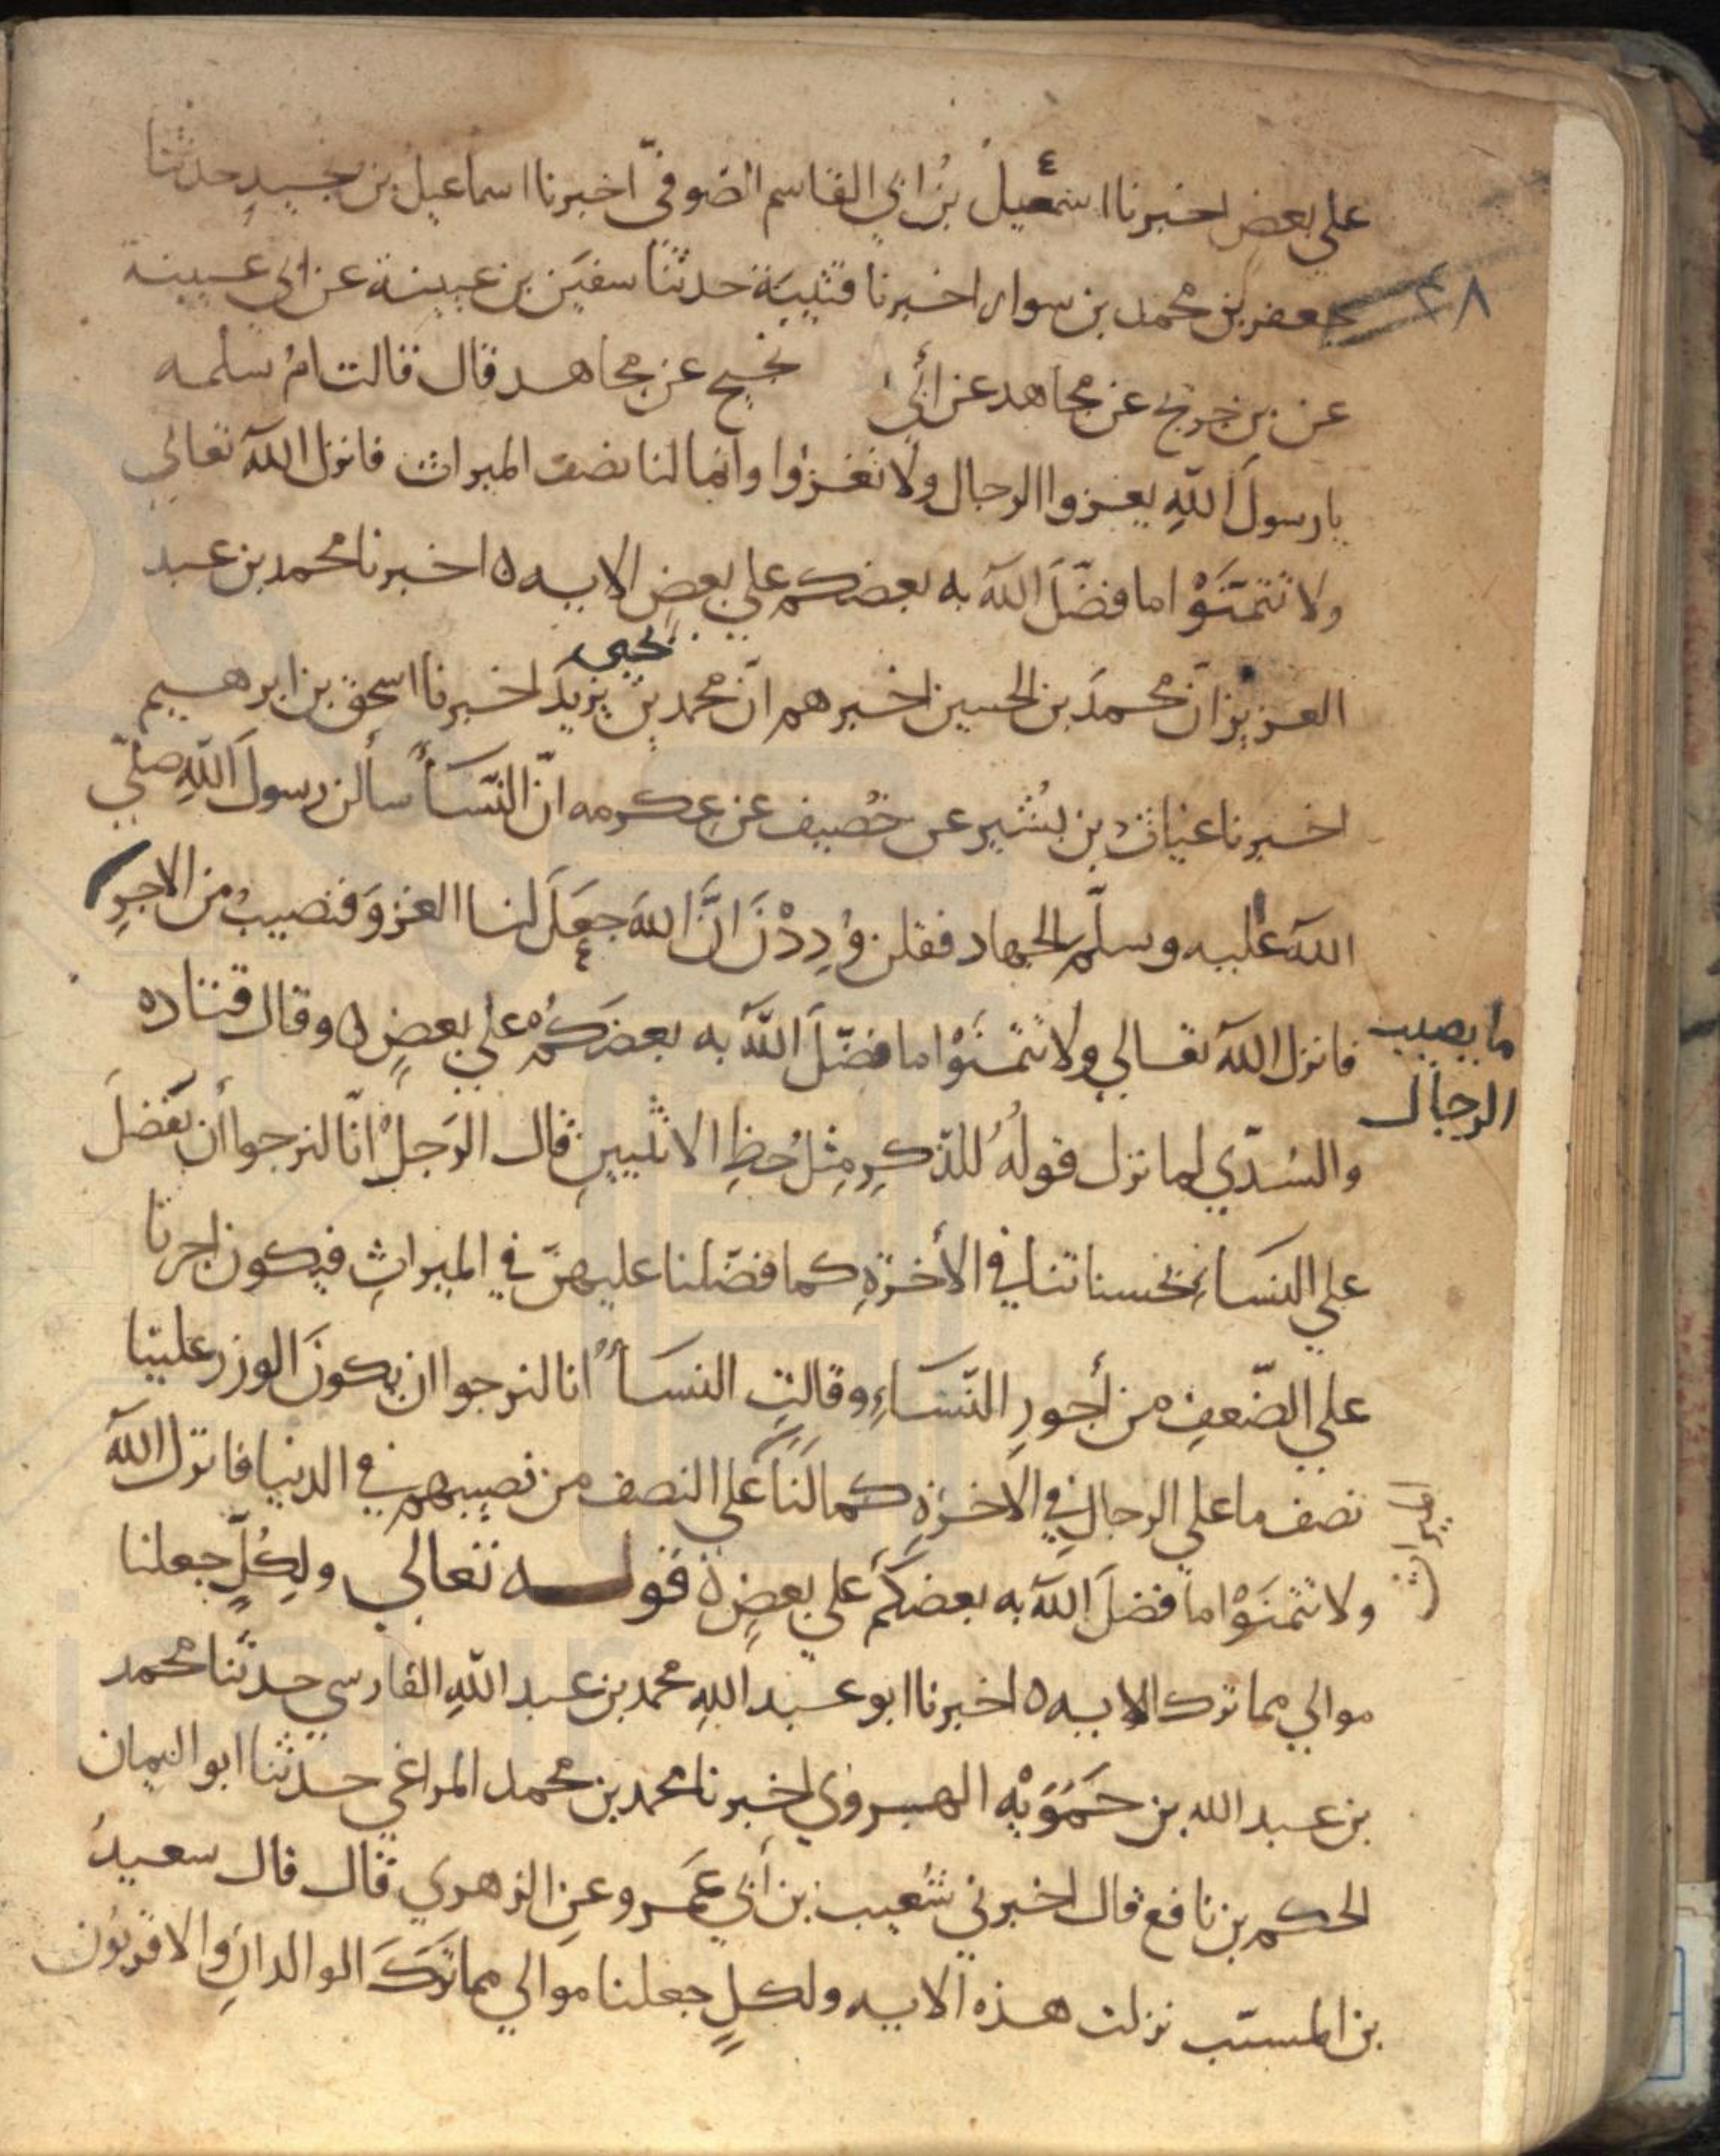 علي بعضٍ اخبرنا اسمعيل بنُ ابي القاسم الصّوفيّ اخبرنا اسماعيل بن نجيدٍ حدثنا
جعفر بن محمد بن سوار اخبرنا قتيبَة حدثنا سفيَن بن عيينة عن ابي عيينة
٢٨
عن بن جريج عن مجاهد عن أبي نجيح عن مجاهد قال قالت امُ سلمه
يا رسولَ اللهِ يغزوا الرجال ولا نغزوا وانما لنا نصف الميراث فانزل الله تعالي
ولا تتمنَّوْا ما فضّلَ الله به بعضكم علي بعضٍ الايه ٥ اخبرنا محمد بن عبد
يحيي
العزيز انّ محمدَ بن الحسين اخبرهم انّ محمد بن يزيدَ اخبرنا اسحق بن ابرهيم
اخبرنا عتاب بن بشير عن خصيف عن عكرمه انّ النّساءُ سألن رسولَ اللهِ صلّي
الله عليه وسلّم الجهاد فقلن وُدِدْنَ انَّ اللهَ جعَلَ لنا الغزوَ فنصيبُ من الاجرِ
ما يصيب
الرجال
فانزل الله تعالي ولا تتمنَّوْا ما فضّلَ الله به بعضَكُم علي بعضٍ ٥ وقال قتاده
والسُدّي لما نزل قولُهُ للذّكرِ مِثلُ حظِ الانثيينِ قال الرَجلُ انّا لنرجوا أن نفضلَ
علي النسَاءِ بحسناتنا في الأخرةِ كما فضّلنا عليهنّ في الميراثِ فيكون اجرنا
علي الضّعفِ من أجورِ النّسَاءِ وقالتِ النسَاءُ انا لنرجوا ان يكونَ الوزر علينا
نصف ما علي الرجال في الاخرةِ كما لنَا علي النصف من نصيبهم في الدنيا فانزل الله
الميراث
ولا تتمنَوْا ما فضلَ الله به بعضكم علي بعضٍ ٥ قوله تعالي ولِكُلٍّ جعلنا
موالي مما ترك الايه ٥ اخبرنا ابو عبد اللهِ محمد بن عبد اللهِ الفارسي حدثنا محمد
بن عبد الله بن حَمَوَيْه الهروي اخبرنا محمد بن محمد المراغي حدثنا ابو اليمان
الحكم بن نافع قال اخبرني شعيب بن أبي عَمرو عنِ الزهري قال قال سعيدُ
بن المسيّب نزلت هذه الايه ولكلٍ جعلنا موالي مما تركَ الوالدانِ والاقربُون